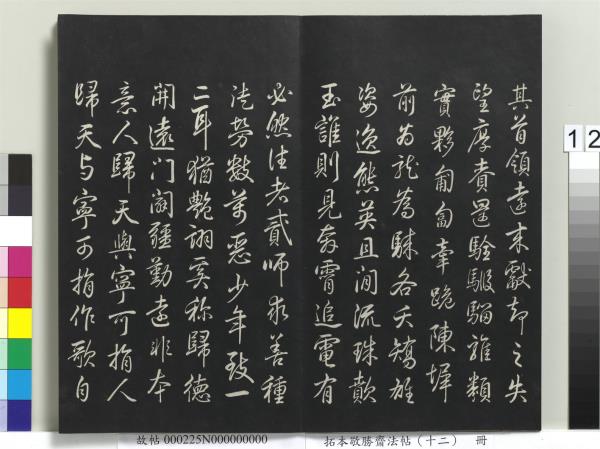 其首領遠來獻却之失
望厚賚還駩騢騮騅類
實夥匍匐牽跪陳墀
前為龍為騋各夭矯雄
姿逸態英且閒流珠歕
玉誰則見奔霄追電有
必然往者貳師求善種
徒勞數萬惡少年致一
二耳猶艷詡奚称歸德
開遠門闢疆勤遠非本
意人歸天與寧可捐人
歸天与寧可捐作歌自
12
故帖 000225N000000000 拓本敬勝齋法帖（十二） 冊